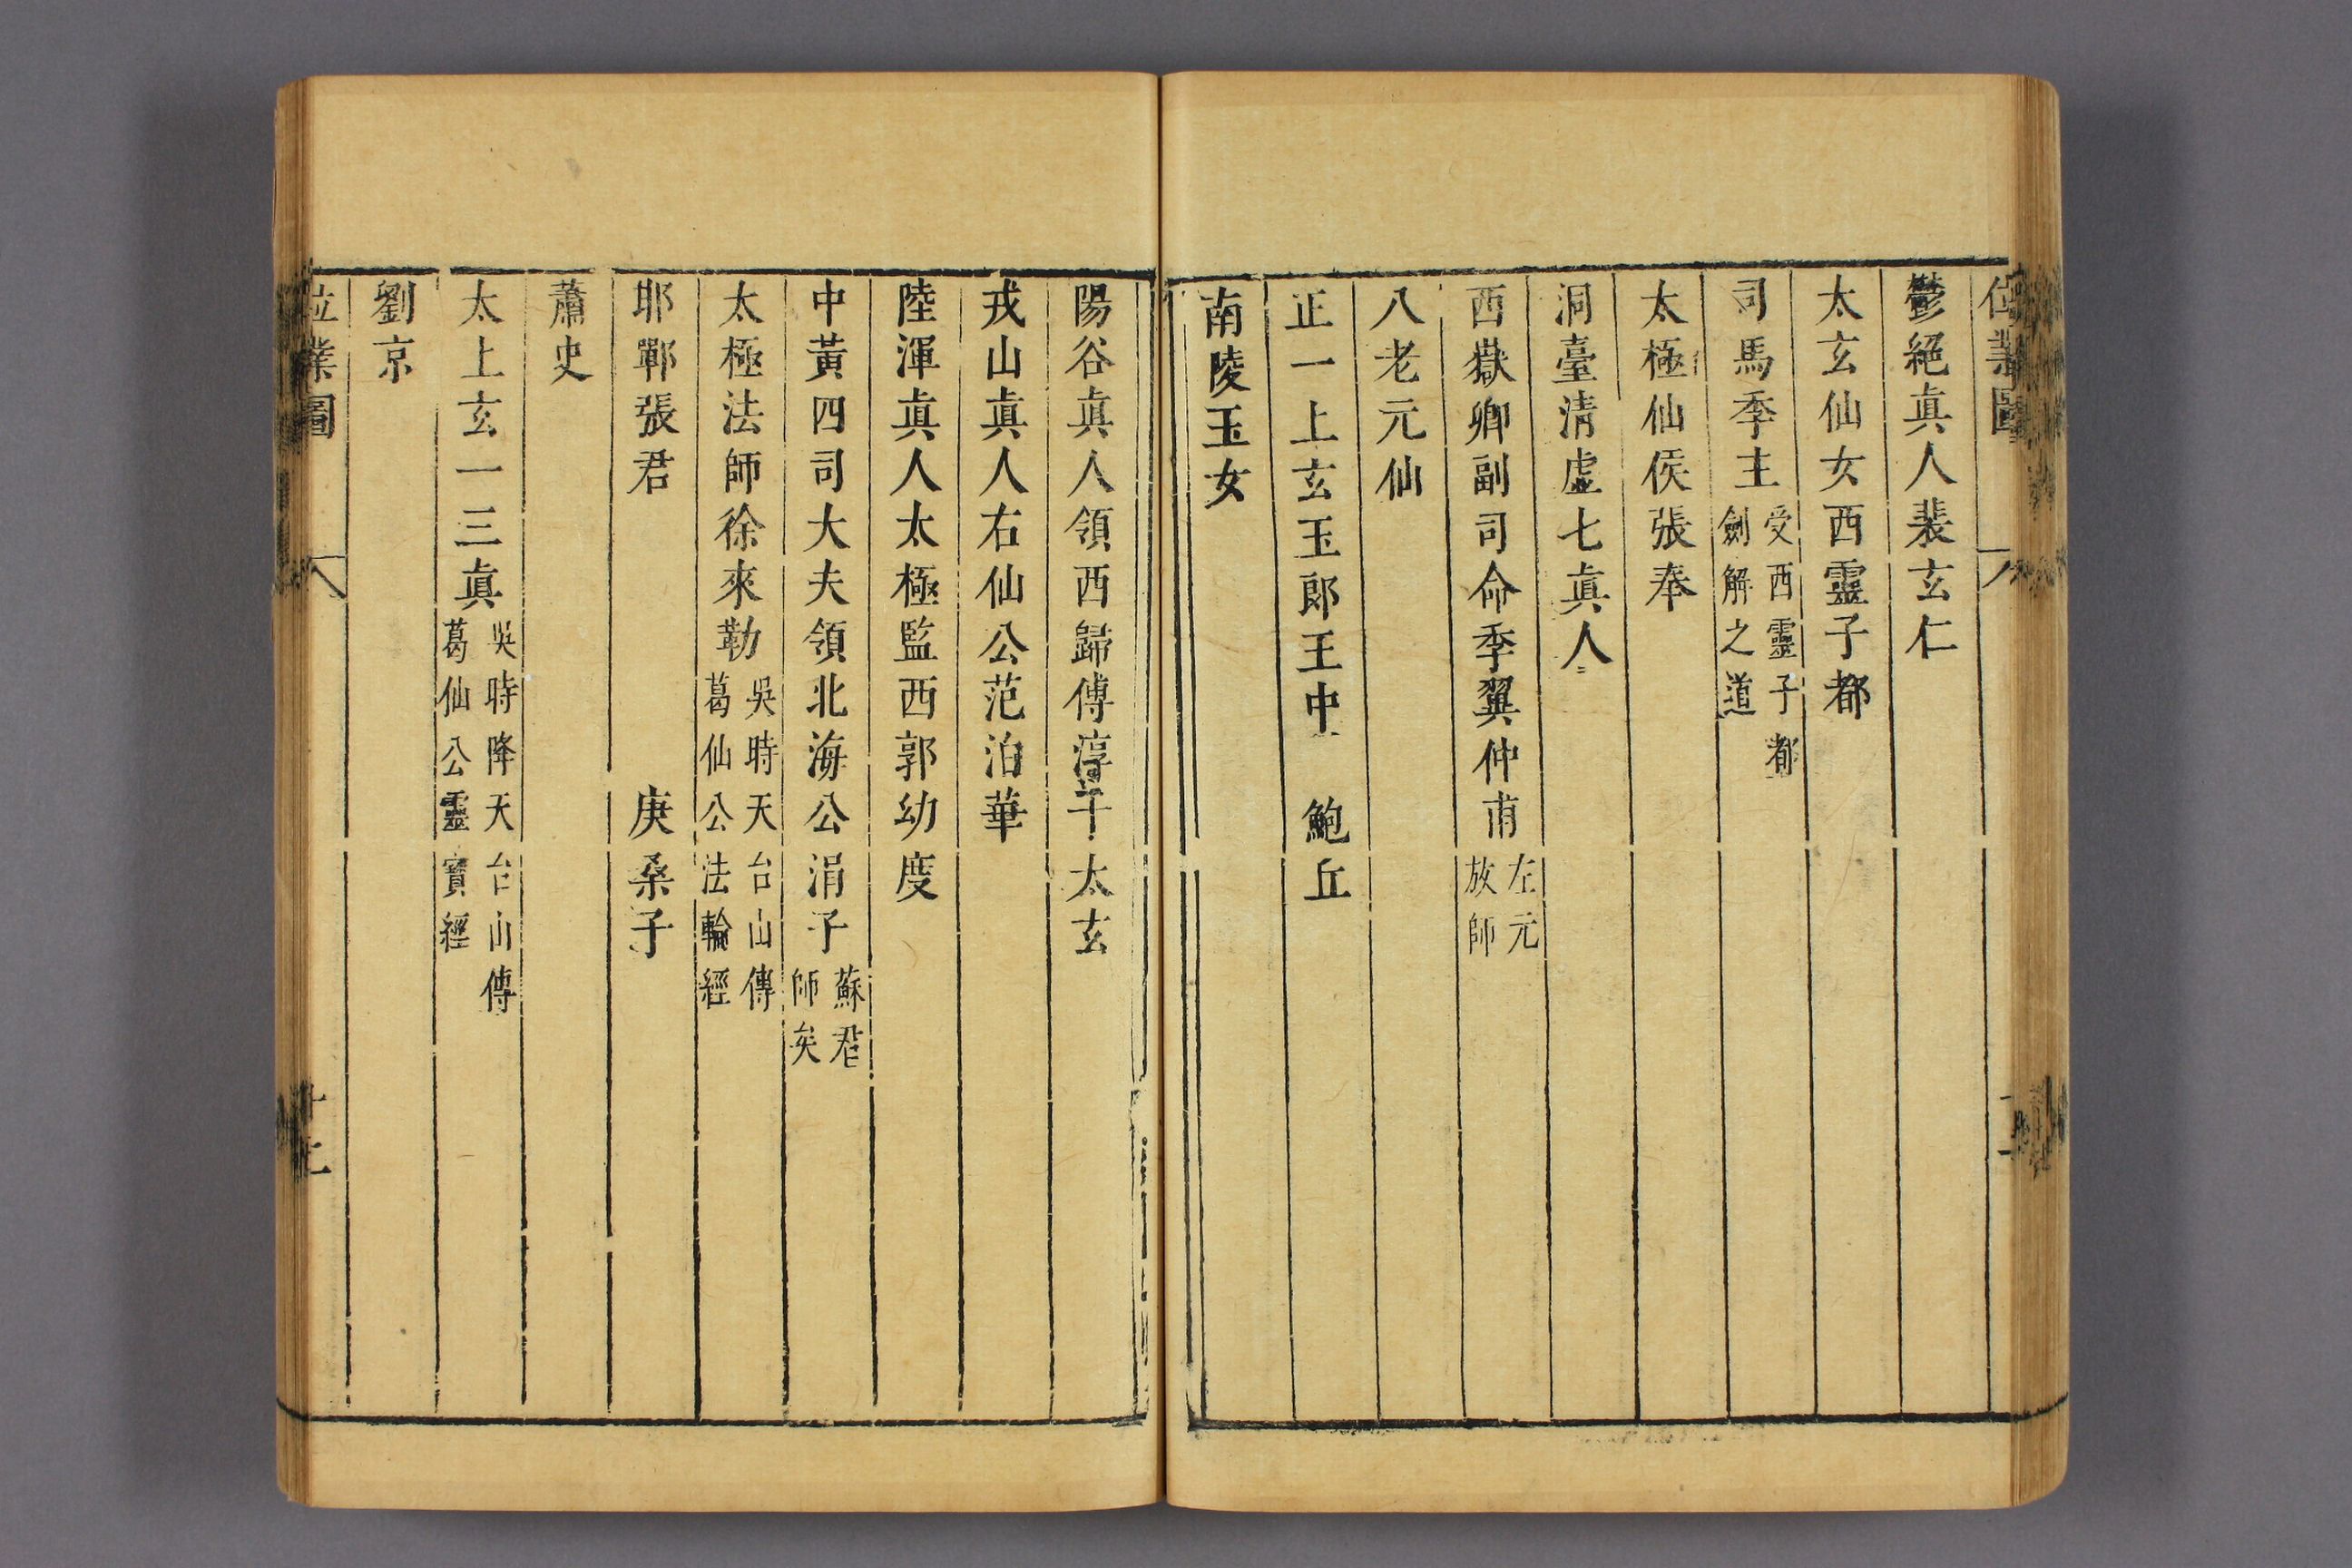 位業圖
鬱絕眞人裴玄仁
太玄仙女西靈子都
司馬季主受西靈子都劍解之道
太極仙侯張奉
洞臺清虛七眞人
西嶽卿副司命季翼仲甫左元放師
八老元仙
正一上玄玉郎王中 鮑丘
南陵玉女
陽谷眞人領西歸傅淳于太玄
戎山眞人右仙公范泊華
陸渾眞人太極監西郭幼度
中黃四司大夫領北海公涓子蘇君師矣
太極法師徐來勒吳時天台山傳葛仙公法輪經
耶鄲張君 庚桑子
蕭史
太上玄一三眞吳時降天台山傳葛仙公靈寶經
劉京
位業圖